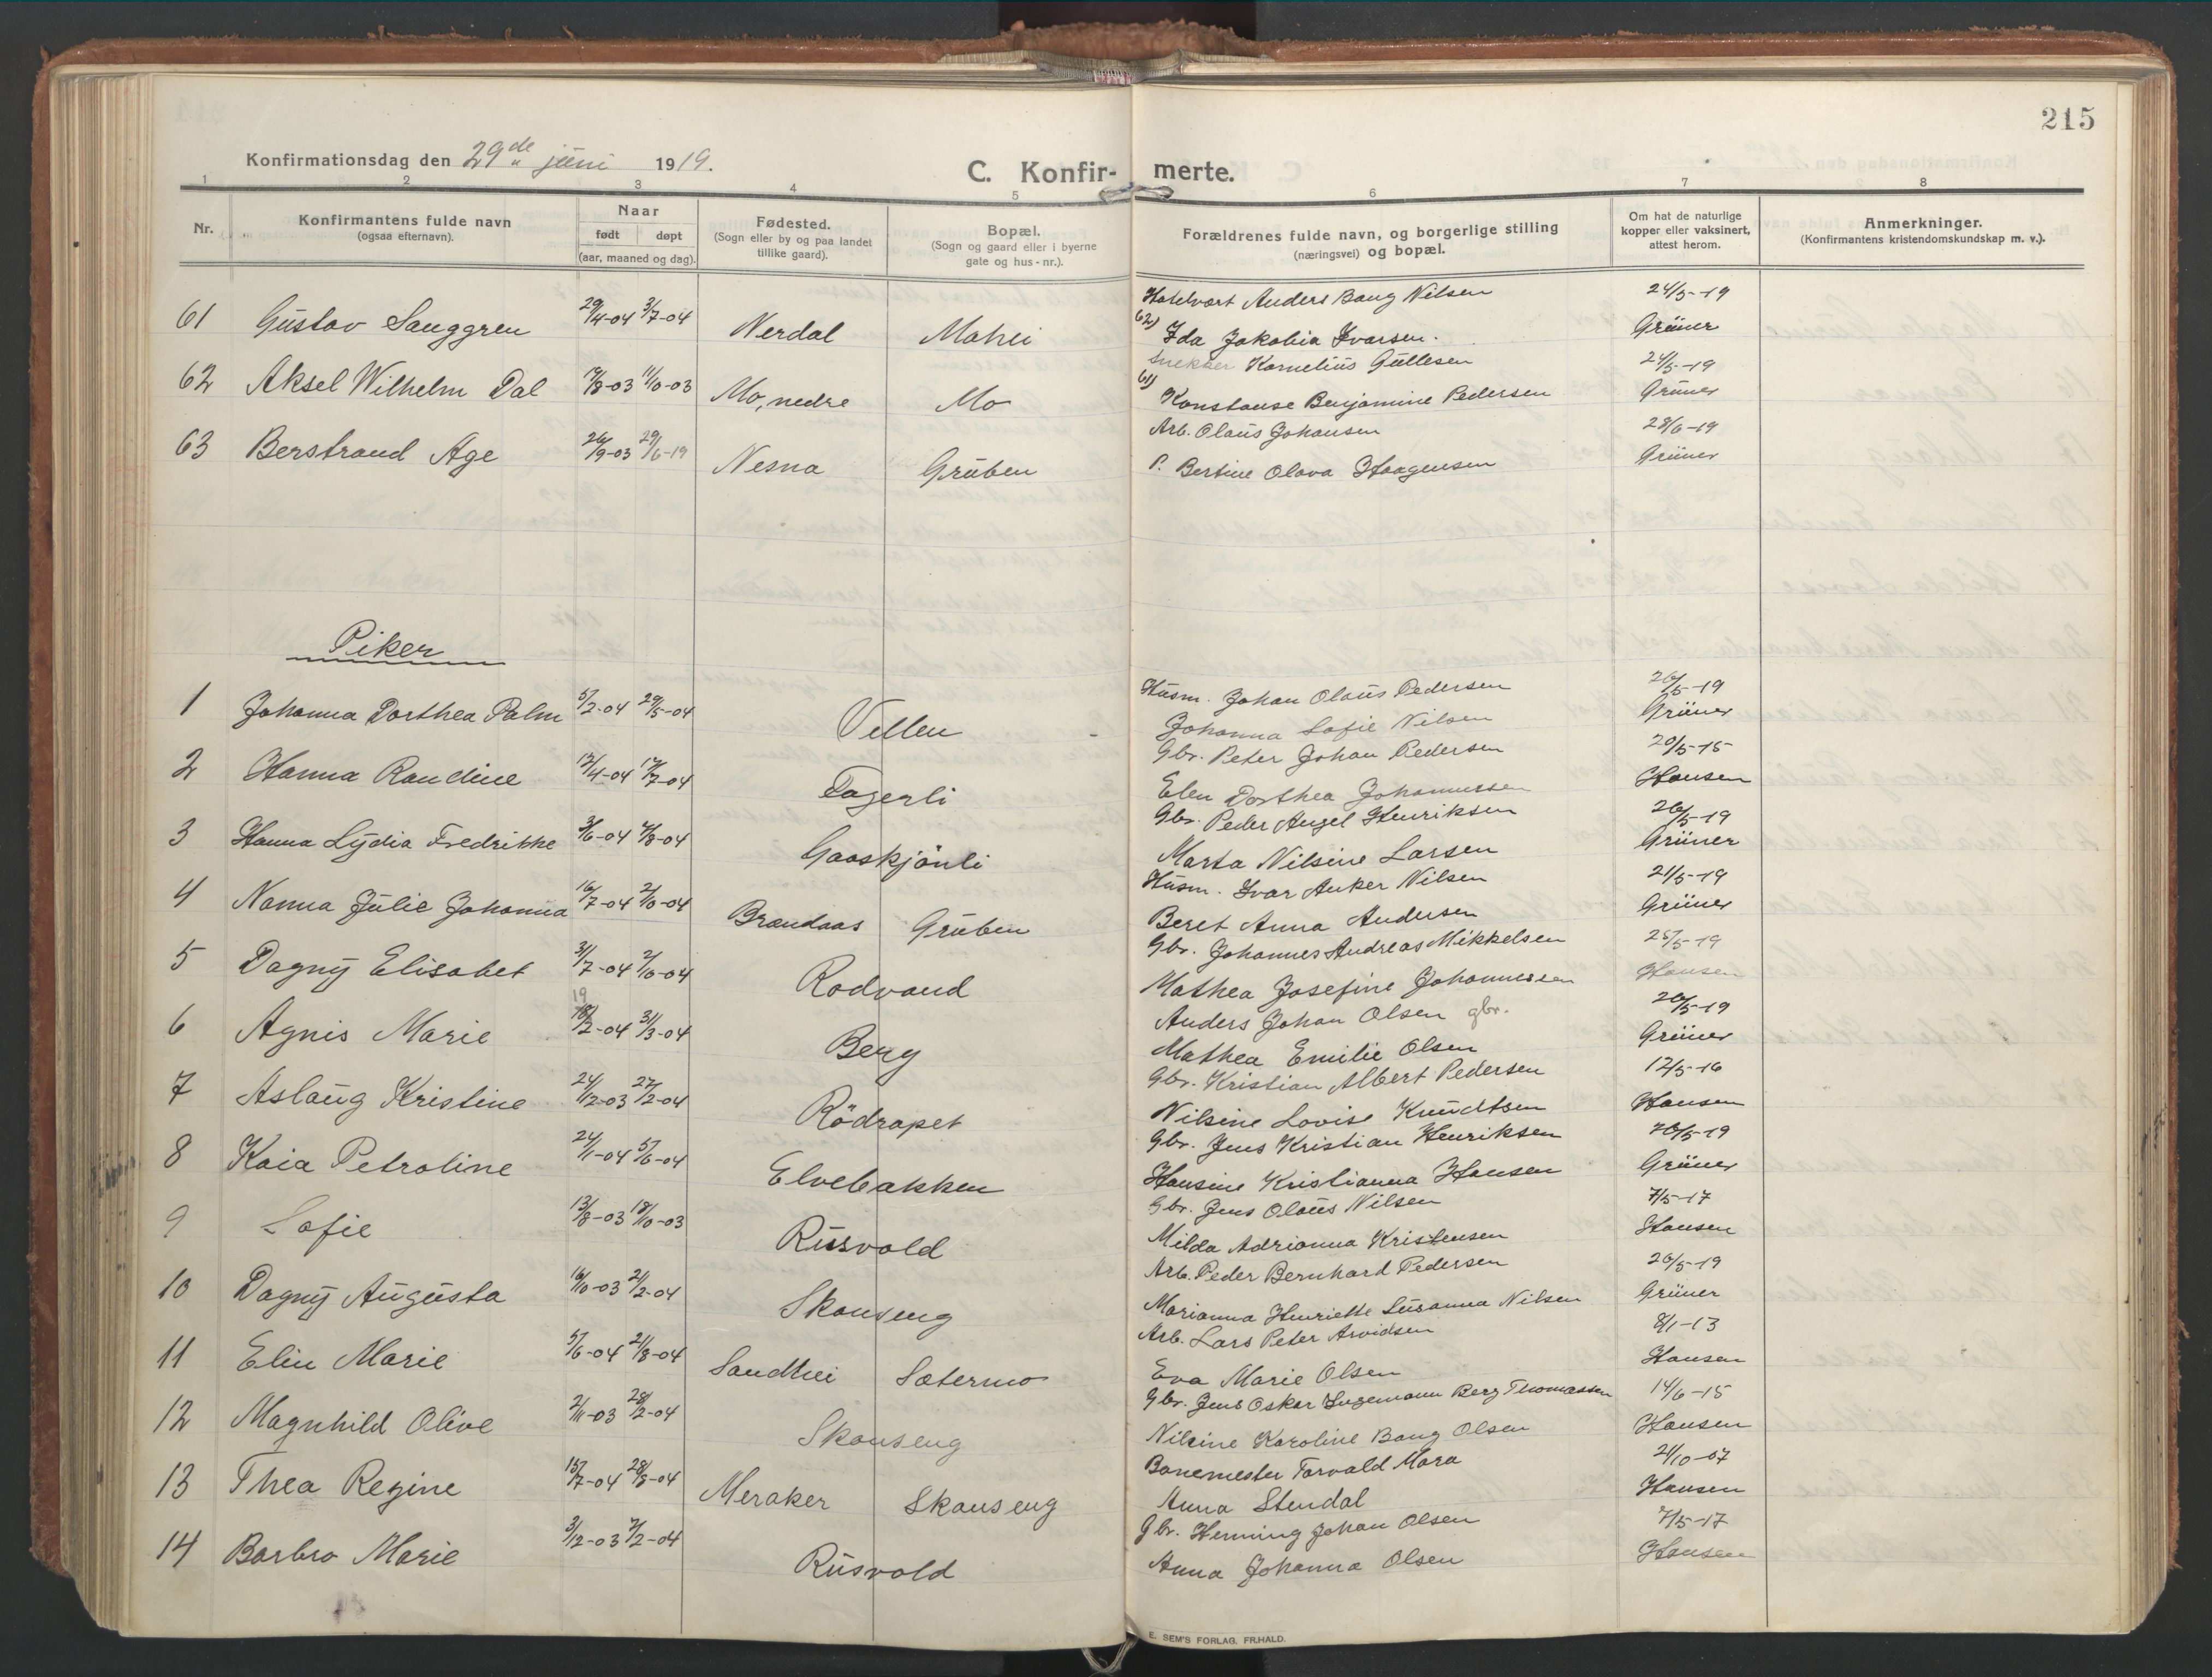 215
Konfirmationsdag den 29de juni 1919.
C. Konfir- merte.
1 2 3 4 5 6 7 8
Nr.
Konfirmantens fulde navn
(ogsaa efternavn).
Naar
født døpt
(aar, maaned og dag).
Fødested.
(Sogn eller by og paa landet
tillike gaard).
Bopæl.
(Sogn og gaard eller i byerne
gate og hus-nr.).
Forældrenes fulde navn, og borgerlige stilling
(næringsvei) og bopæl.
Om hat de naturlige
kopper eller vaksinert,
attest herom.
Anmerkninger.
(Konfirmantens kristendomskundskap m. v.).
61 Gustav Sauggren 29/4-04 3/7-04 Nerdal Mohei
Hotelvært Anders Bang Nilsen 24/5-19
62) Ida Jakobia Ivarsen. Grüner
62 Aksel Wilhelm Dal 17/8-03 11/10-03 Mo, nedre Mo
Snekker Kornelius Gullesen 24/5-19
61) Konstanse Benjamine Pedersen Grüner
63 Berstrand Age 26/9-03 29/6-19 Nesna Gruben
Arb. Olaus Johansen 28/6-19
P. Bertine Olava Haagensen Grüner
Piker
1 Johanna Dorthea Palm 5/2-04 29/5-04 Vellen
Husm. Johan Olaus Pedersen 26/5-19
Johanna Sofie Nilsen Grüner
2 Hanna Randine 17/4-04 17/7-04 Fagerli
Gbr. Peter Johan Pedersen 20/5-15
Elen Dorthea Johannessen Hansen
3 Hanna Lydia Fredrikke 3/6-04 7/8-04 Gaaskjönli
Gbr. Peder Angel Henriksen 26/5-19
Marta Nilsine Larsen Grüner
4 Nanna Julie Johanna 16/7-04 2/10-04 Brandaas Gruben
Husm. Ivar Anker Nilsen 21/5-19
Beret Anna Andersen Grüner
5 Dagny Elisabet 31/7-04 2/10-04 Rodvand
Gbr. Johannes Andreas Mikkelsen 25/5-19
Mathea Josefine Johannessen Hansen
19
6 Agnis Marie 18/2-04 31/3-04 Berg
Anders Johan Olsen gbr. 20/5-19
Mathea Emilie Olsen Grüner
7 Aslaug Kristine 24/12-03 27/2-04 Rödrapet
Gbr. Kristian Albert Pedersen 12/5-16
Nilsine Lovise Knudtsen Hansen
8 Kaia Petroline 24/1-04 5/6-04 Elvebakken
Gbr. Jens Kristian Henriksen 20/5-19
Hansine Kristianna Hansen Grüner
9 Sofie 13/8-03 18/10-03 Rusvold
Gbr. Jens Olaus Nilsen 7/5-17
Milda Adrianna Kristensen Hansen
10 Dagny Augusta 16/10-03 21/2-04 Skonseng
Arb. Peder Bernhard Pedersen 20/5-19
Marianna Henriette Susanna Nilsen Grüner
11 Elin Marie 5/6-04 21/8-04 Sandhei Sætermo
Arb. Lars Peter Arvidsen 8/1-13
Eva Marie Olsen Hansen
12 Magnhild Olive 2/11-03 28/2-04 Skonseng
Gbr. Jens Oskar Ingemann Berg Thomassen 14/6-15
Nilsine Karoline Bang Olsen Hansen
13 Thea Regine 15/7-04 28/8-04 Meraker Skonseng
Banemester Torvald Mora 21/10-07
Anna Stendal Hansen
14 Barbro Marie 3/12-03 7/2-04 Rusvold
Gbr. Henning Johan Olsen 7/5-17
Anna Johanna Olsen Hansen
E. SEM'S FORLAG. FR.HALD.